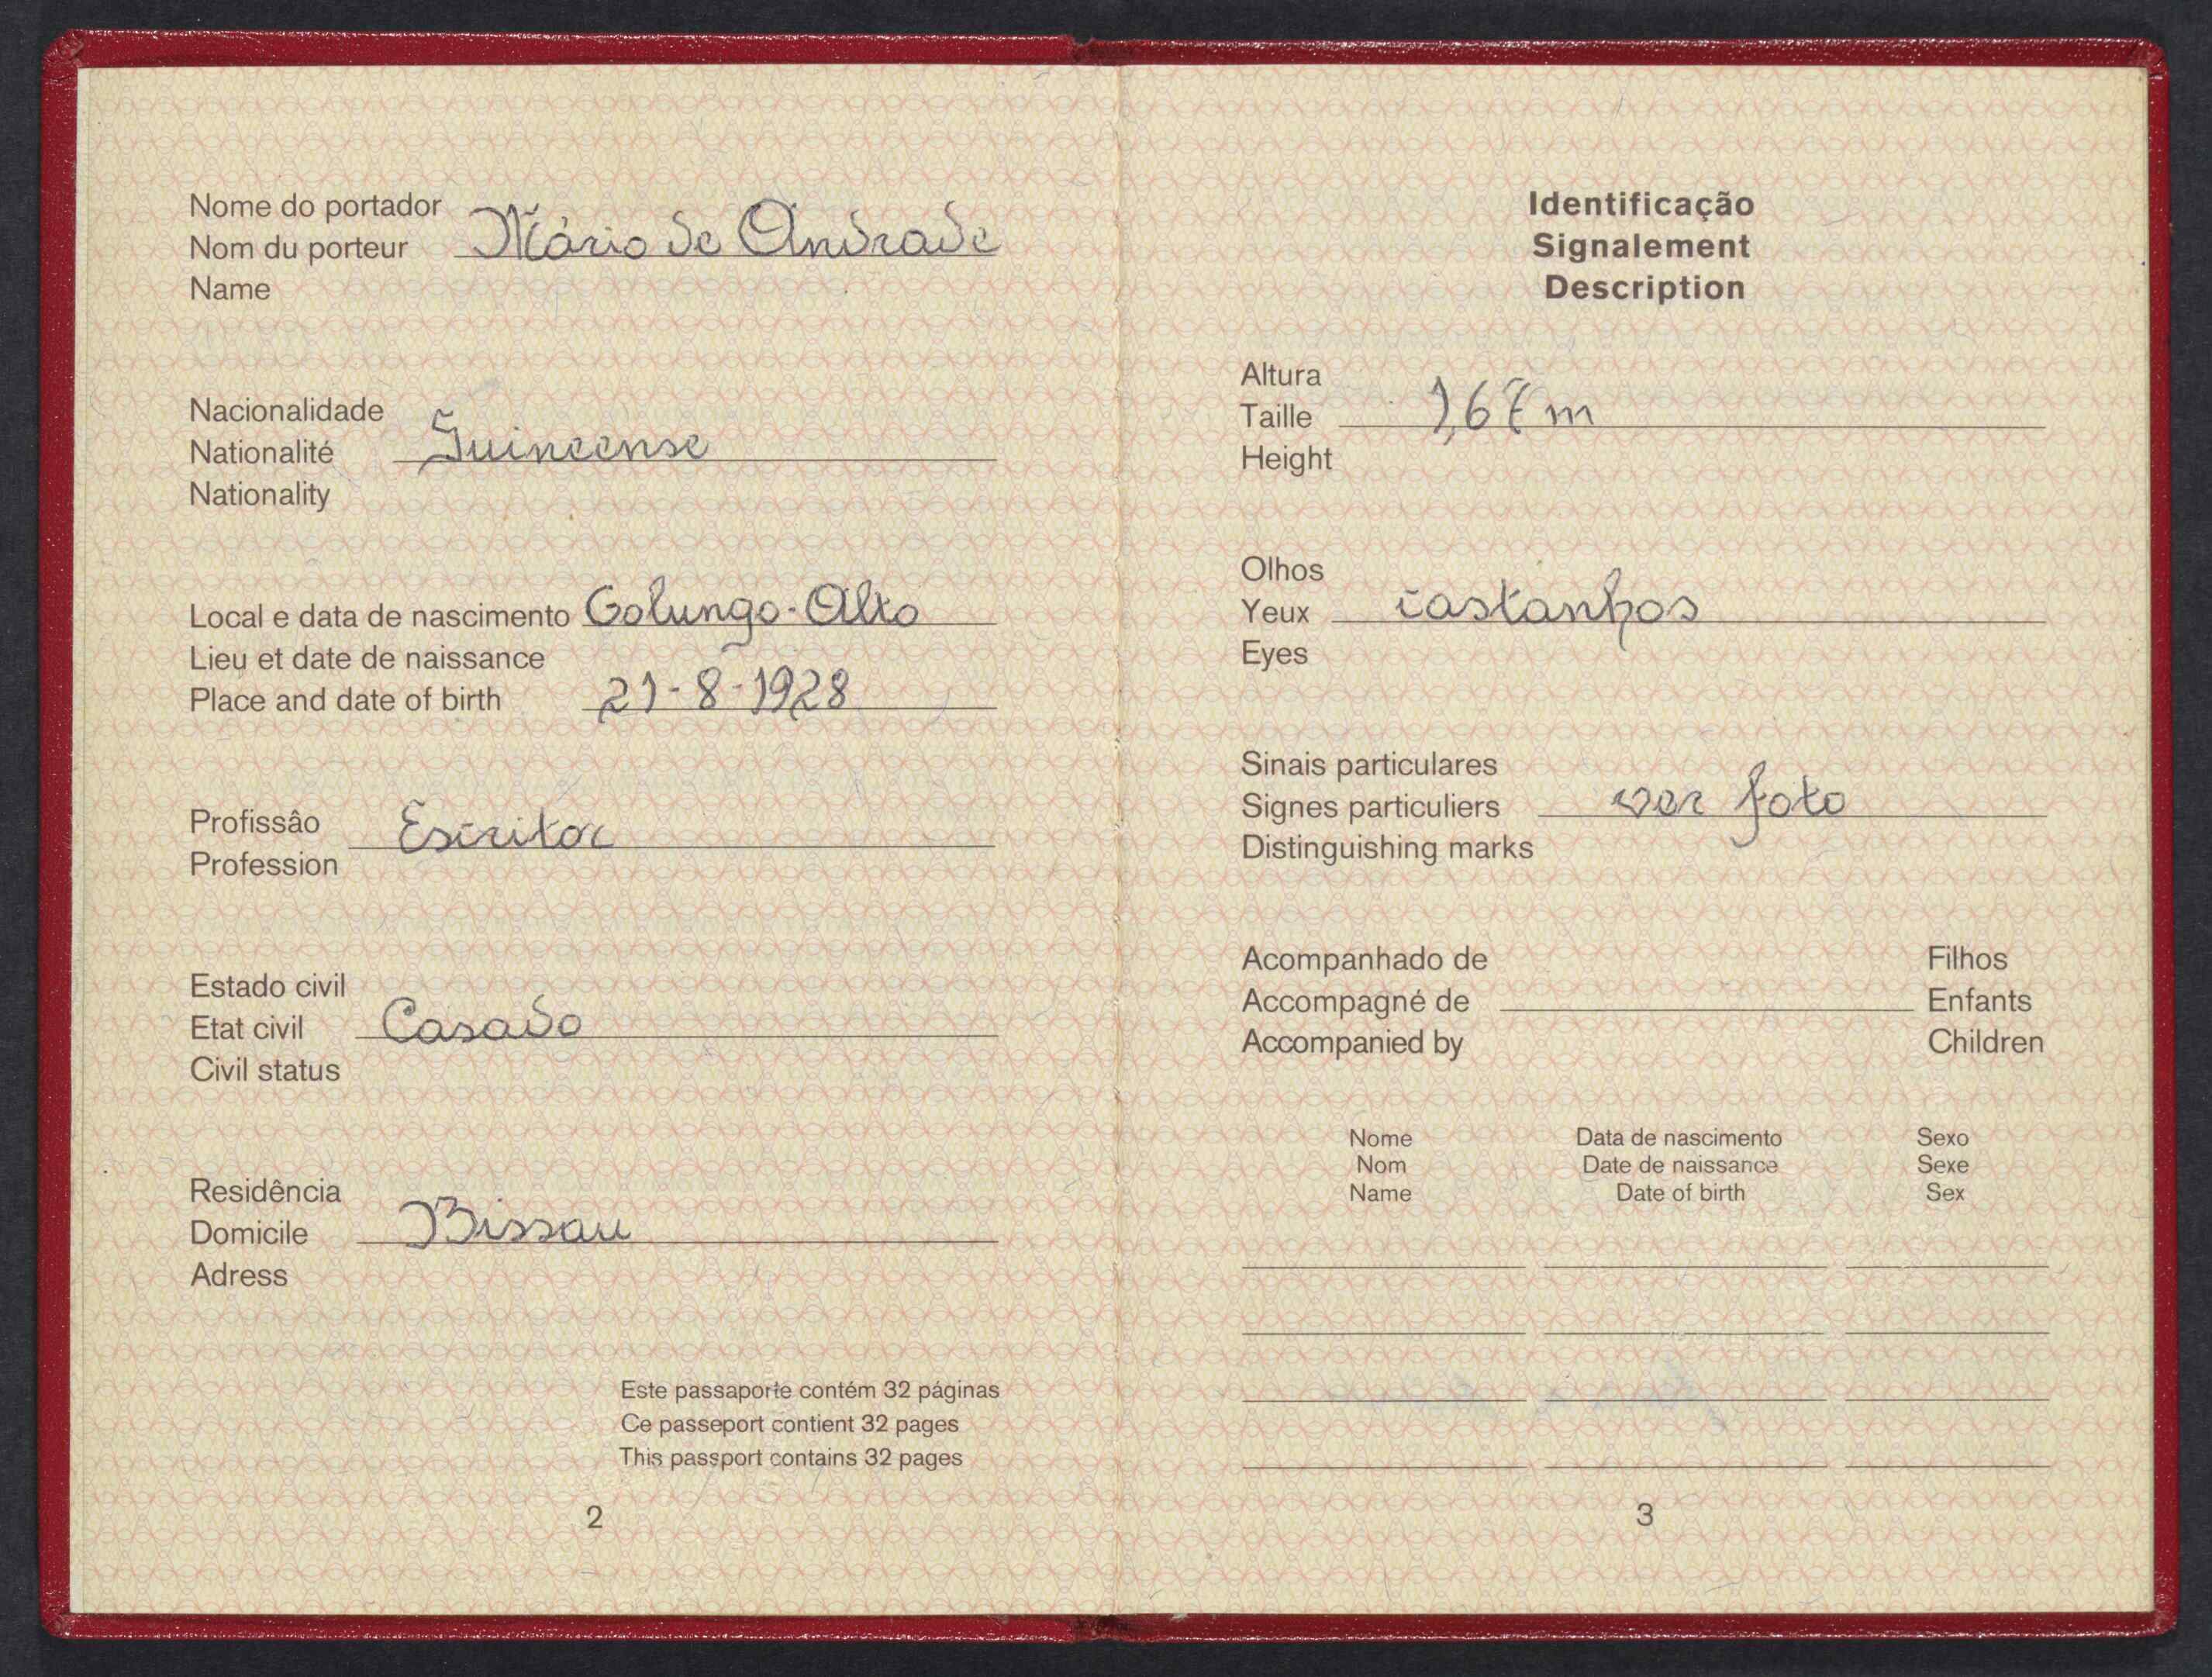 Nome do portador
Nom du porteur Mário de Andrade
Name
Nacionalidade
Nationalité Guineense
Nationality
Local e data de nascimento Golungo-Alto
Lieu et date de naissance
Place and date of birth 21-8-1928
Profissâo Escritor
Profession
Estado civil
Etat civil Casado
Civil status
Residência
Domicile Bissau
Adress
Este passaporte contém 32 páginas
Ce passeport contient 32 pages
This passport contains 32 pages
2
Identificação
Signalement
Description
Altura
Taille 1,67m
Height
Olhos
Yeux castanhos
Eyes
Sinais particulares
Signes particuliers ver foto
Distinguishing marks
Acompanhado de Filhos
Accompagné de Enfants
Accompanied by Children
Nome Data de nascimento Sexo
Nom Date de naissance Sexe
Name Date of birth Sex
3